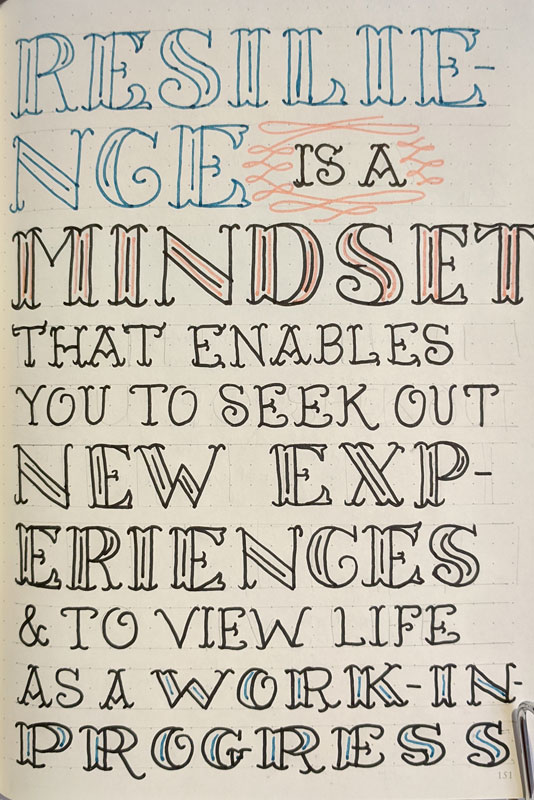 RESILIE-
NCE IS A
MINDSET
THAT ENABLES
YOU TO SEEK OUT
NEW EXP-
ERIENCES
& TO VIEW LIFE
AS A WORK-IN-
PROGRESS
151